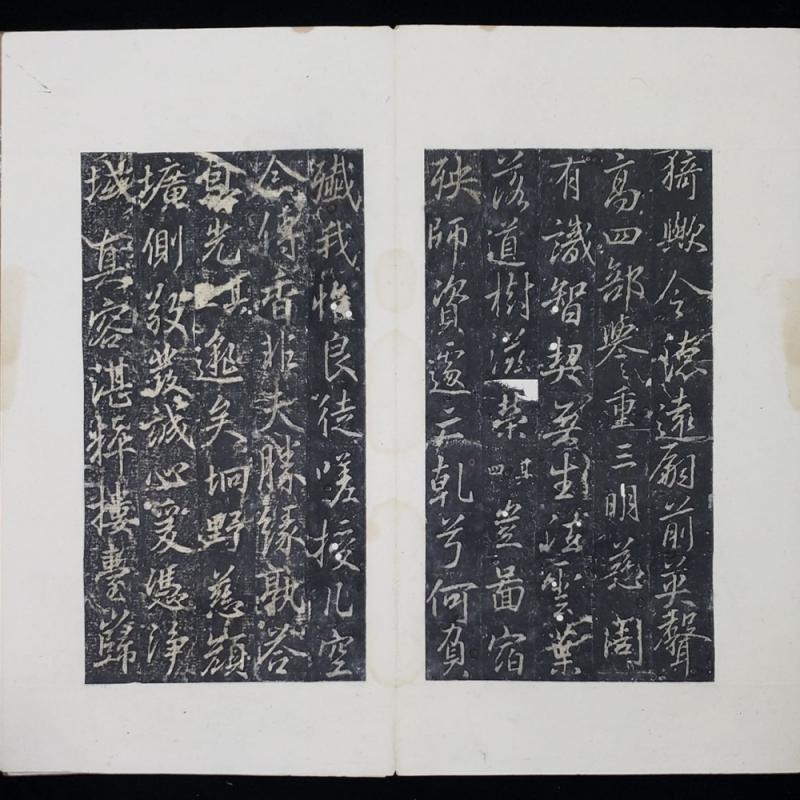 猗歟令德遠嗣前英聲
高四部譽重三明慈周
有識智契無生法雲葉
落道樹滋榮其四豈啚宿
殃師資遽亡乾兮何負
殲我惟良徒嗟授几空
念傳香非夫勝緣孰答
恩光其邈矣坰野慈顏
壙側敬發誠心爰憑淨
域真容湛粹樓臺歸